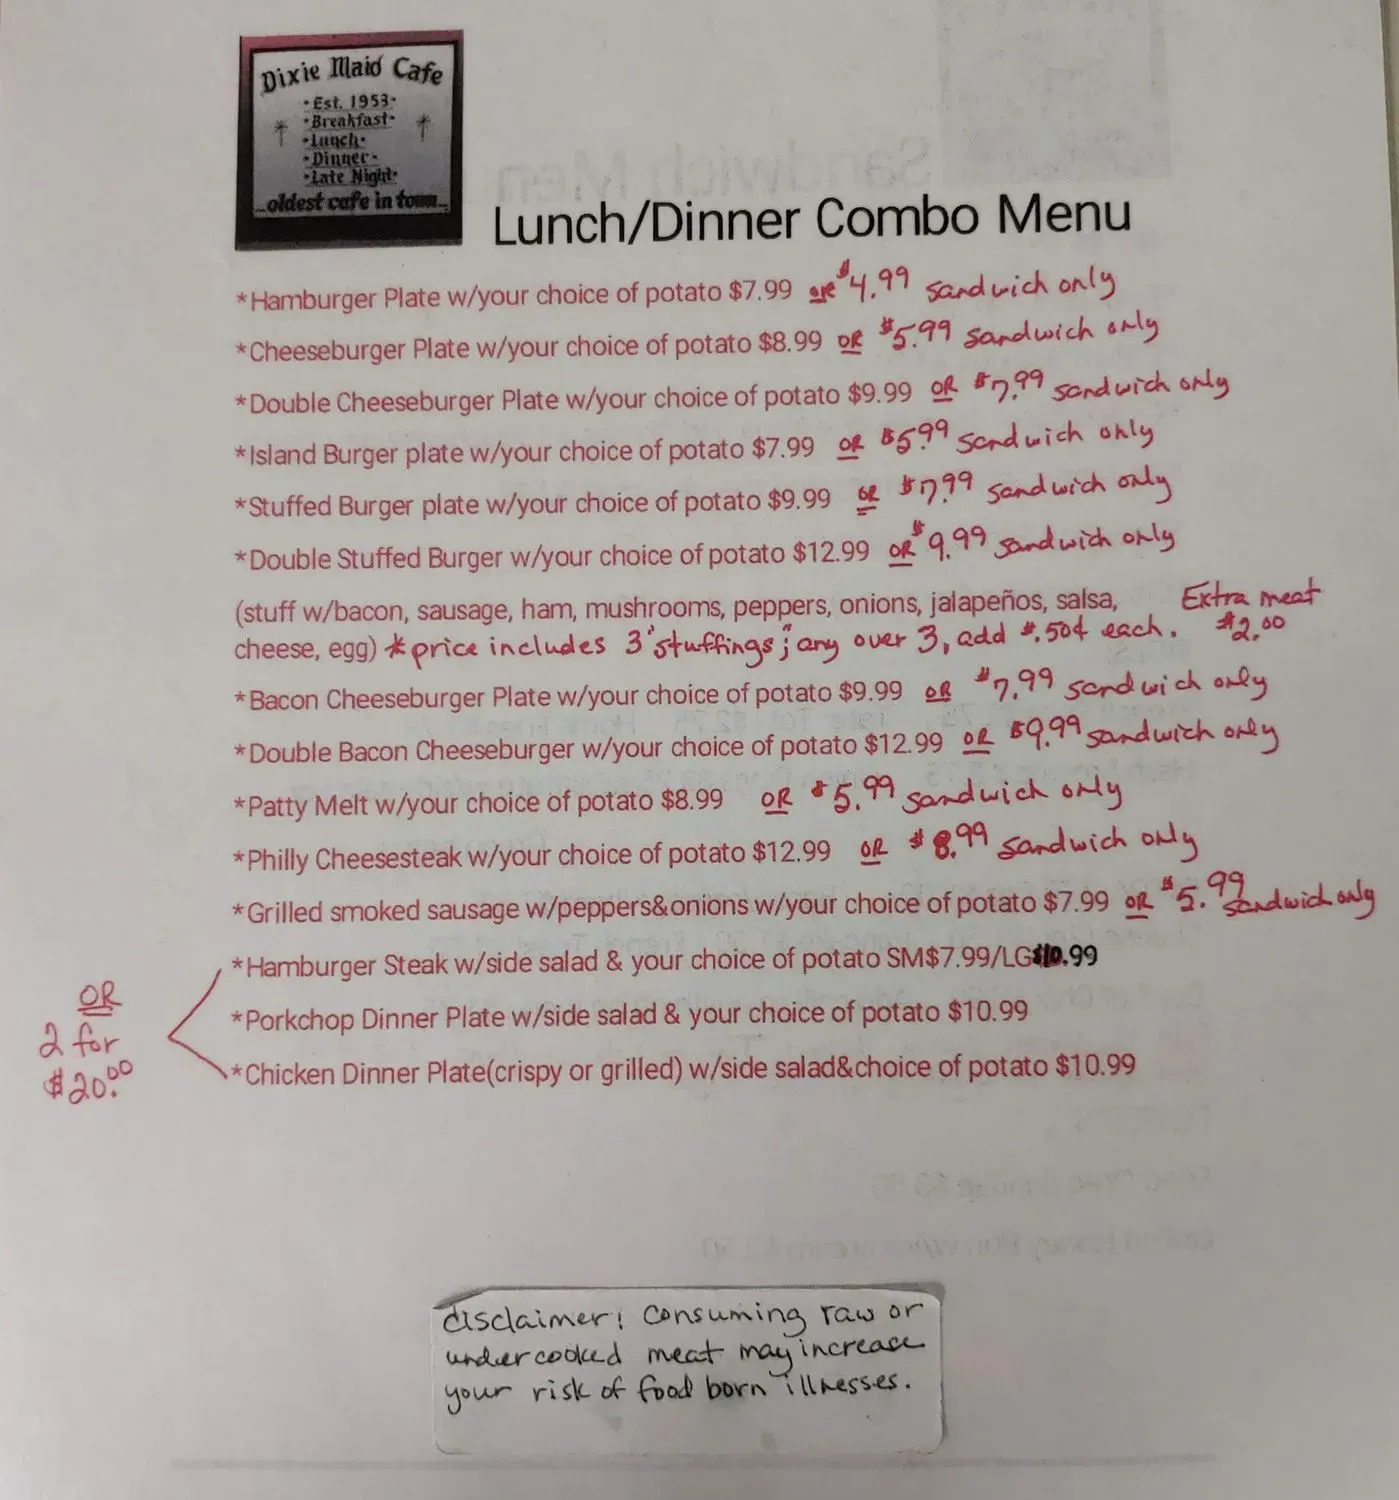 Dixie Maid Cafe
•Est. 1953•
•Breakfast•
•Lunch•
•Dinner•
•Late Night•
...oldest cafe in town...
Lunch/Dinner Combo Menu
*Hamburger Plate w/your choice of potato $7.99 or $4.99 sandwich only
*Cheeseburger Plate w/your choice of potato $8.99 OR $5.99 sandwich only
*Double Cheeseburger Plate w/your choice of potato $9.99 OR $7.99 sandwich only
*Island Burger plate w/your choice of potato $7.99 OR $5.99 sandwich only
*Stuffed Burger plate w/your choice of potato $9.99 OR $7.99 sandwich only
*Double Stuffed Burger w/your choice of potato $12.99 OR $9.99 sandwich only
(stuff w/bacon, sausage, ham, mushrooms, peppers, onions, jalapeños, salsa, Extra meat
cheese, egg) *price includes 3 "stuffings"; any over 3, add $.50¢ each. $2.00
*Bacon Cheeseburger Plate w/your choice of potato $9.99 OR $7.99 sandwich only
*Double Bacon Cheeseburger w/your choice of potato $12.99 OR $9.99 sandwich only
*Patty Melt w/your choice of potato $8.99 OR $5.99 sandwich only
*Philly Cheesesteak w/your choice of potato $12.99 OR $8.99 sandwich only
*Grilled smoked sausage w/peppers&onions w/your choice of potato $7.99 OR $5.99 sandwich only
*Hamburger Steak w/side salad & your choice of potato SM$7.99/LG$10.99
*Porkchop Dinner Plate w/side salad & your choice of potato $10.99
*Chicken Dinner Plate(crispy or grilled) w/side salad&choice of potato $10.99
OR
2 for
$20.00
disclaimer: Consuming raw or
undercooked meat may increase
your risk of food born illnesses.